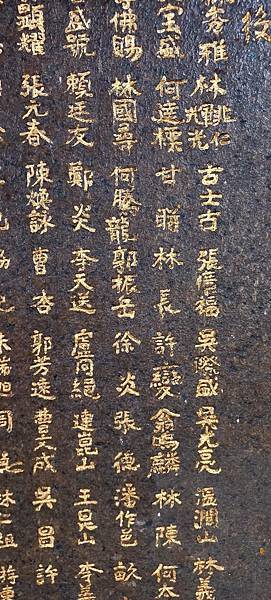 秀雅 林桃仁輝光 古士古 張信福 吳際盛 吳光亮 溫潤山 林義
宝盛 何達標 甘聯 林長 許變 翁鳴麟 林陳 何
佛賜 林國壽 何騰龍 郭振岳 徐炎 張德 潘作邑
盛號 賴廷友 鄭炎 李天送 盧阿總 連崑山 王見山 李
顯耀 張元春 陳煥詠 曹杏 郭芳遠 曹文成 吳昌 許
朱 旭 林仁祖